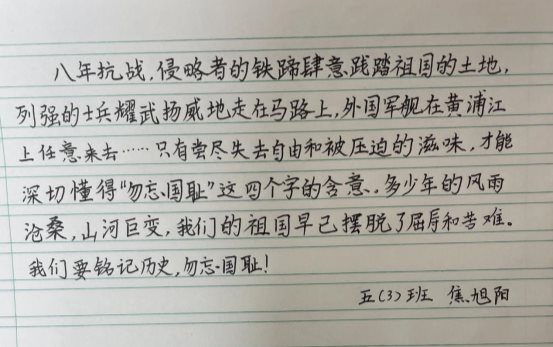 八年抗战,侵略者的铁蹄肆意践踏祖国的土地,
列强的士兵耀武扬威地走在马路上,外国军舰在黄浦江
上任意来去……只有尝尽失去自由和被压迫的滋味,才能
深切懂得“勿忘国耻”这四个字的含意.多少年的风雨
沧桑,山河巨变,我们的祖国早已摆脱了屈辱和苦难。
我们要铭记历史,勿忘国耻!
五(3)班 焦旭阳